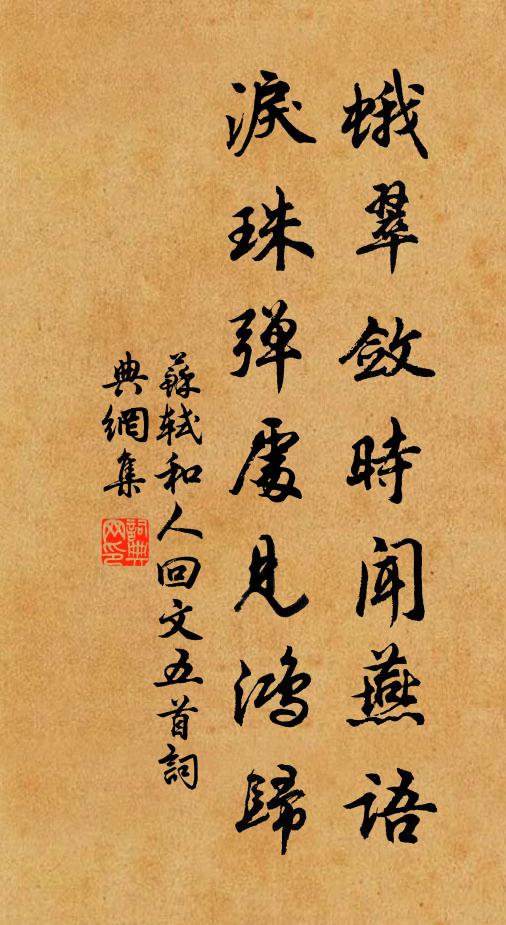 蛾翠斂時聞燕語
淚珠彈處見鴻歸
蘇軾和人回文五首詞
典網集
詞典网印